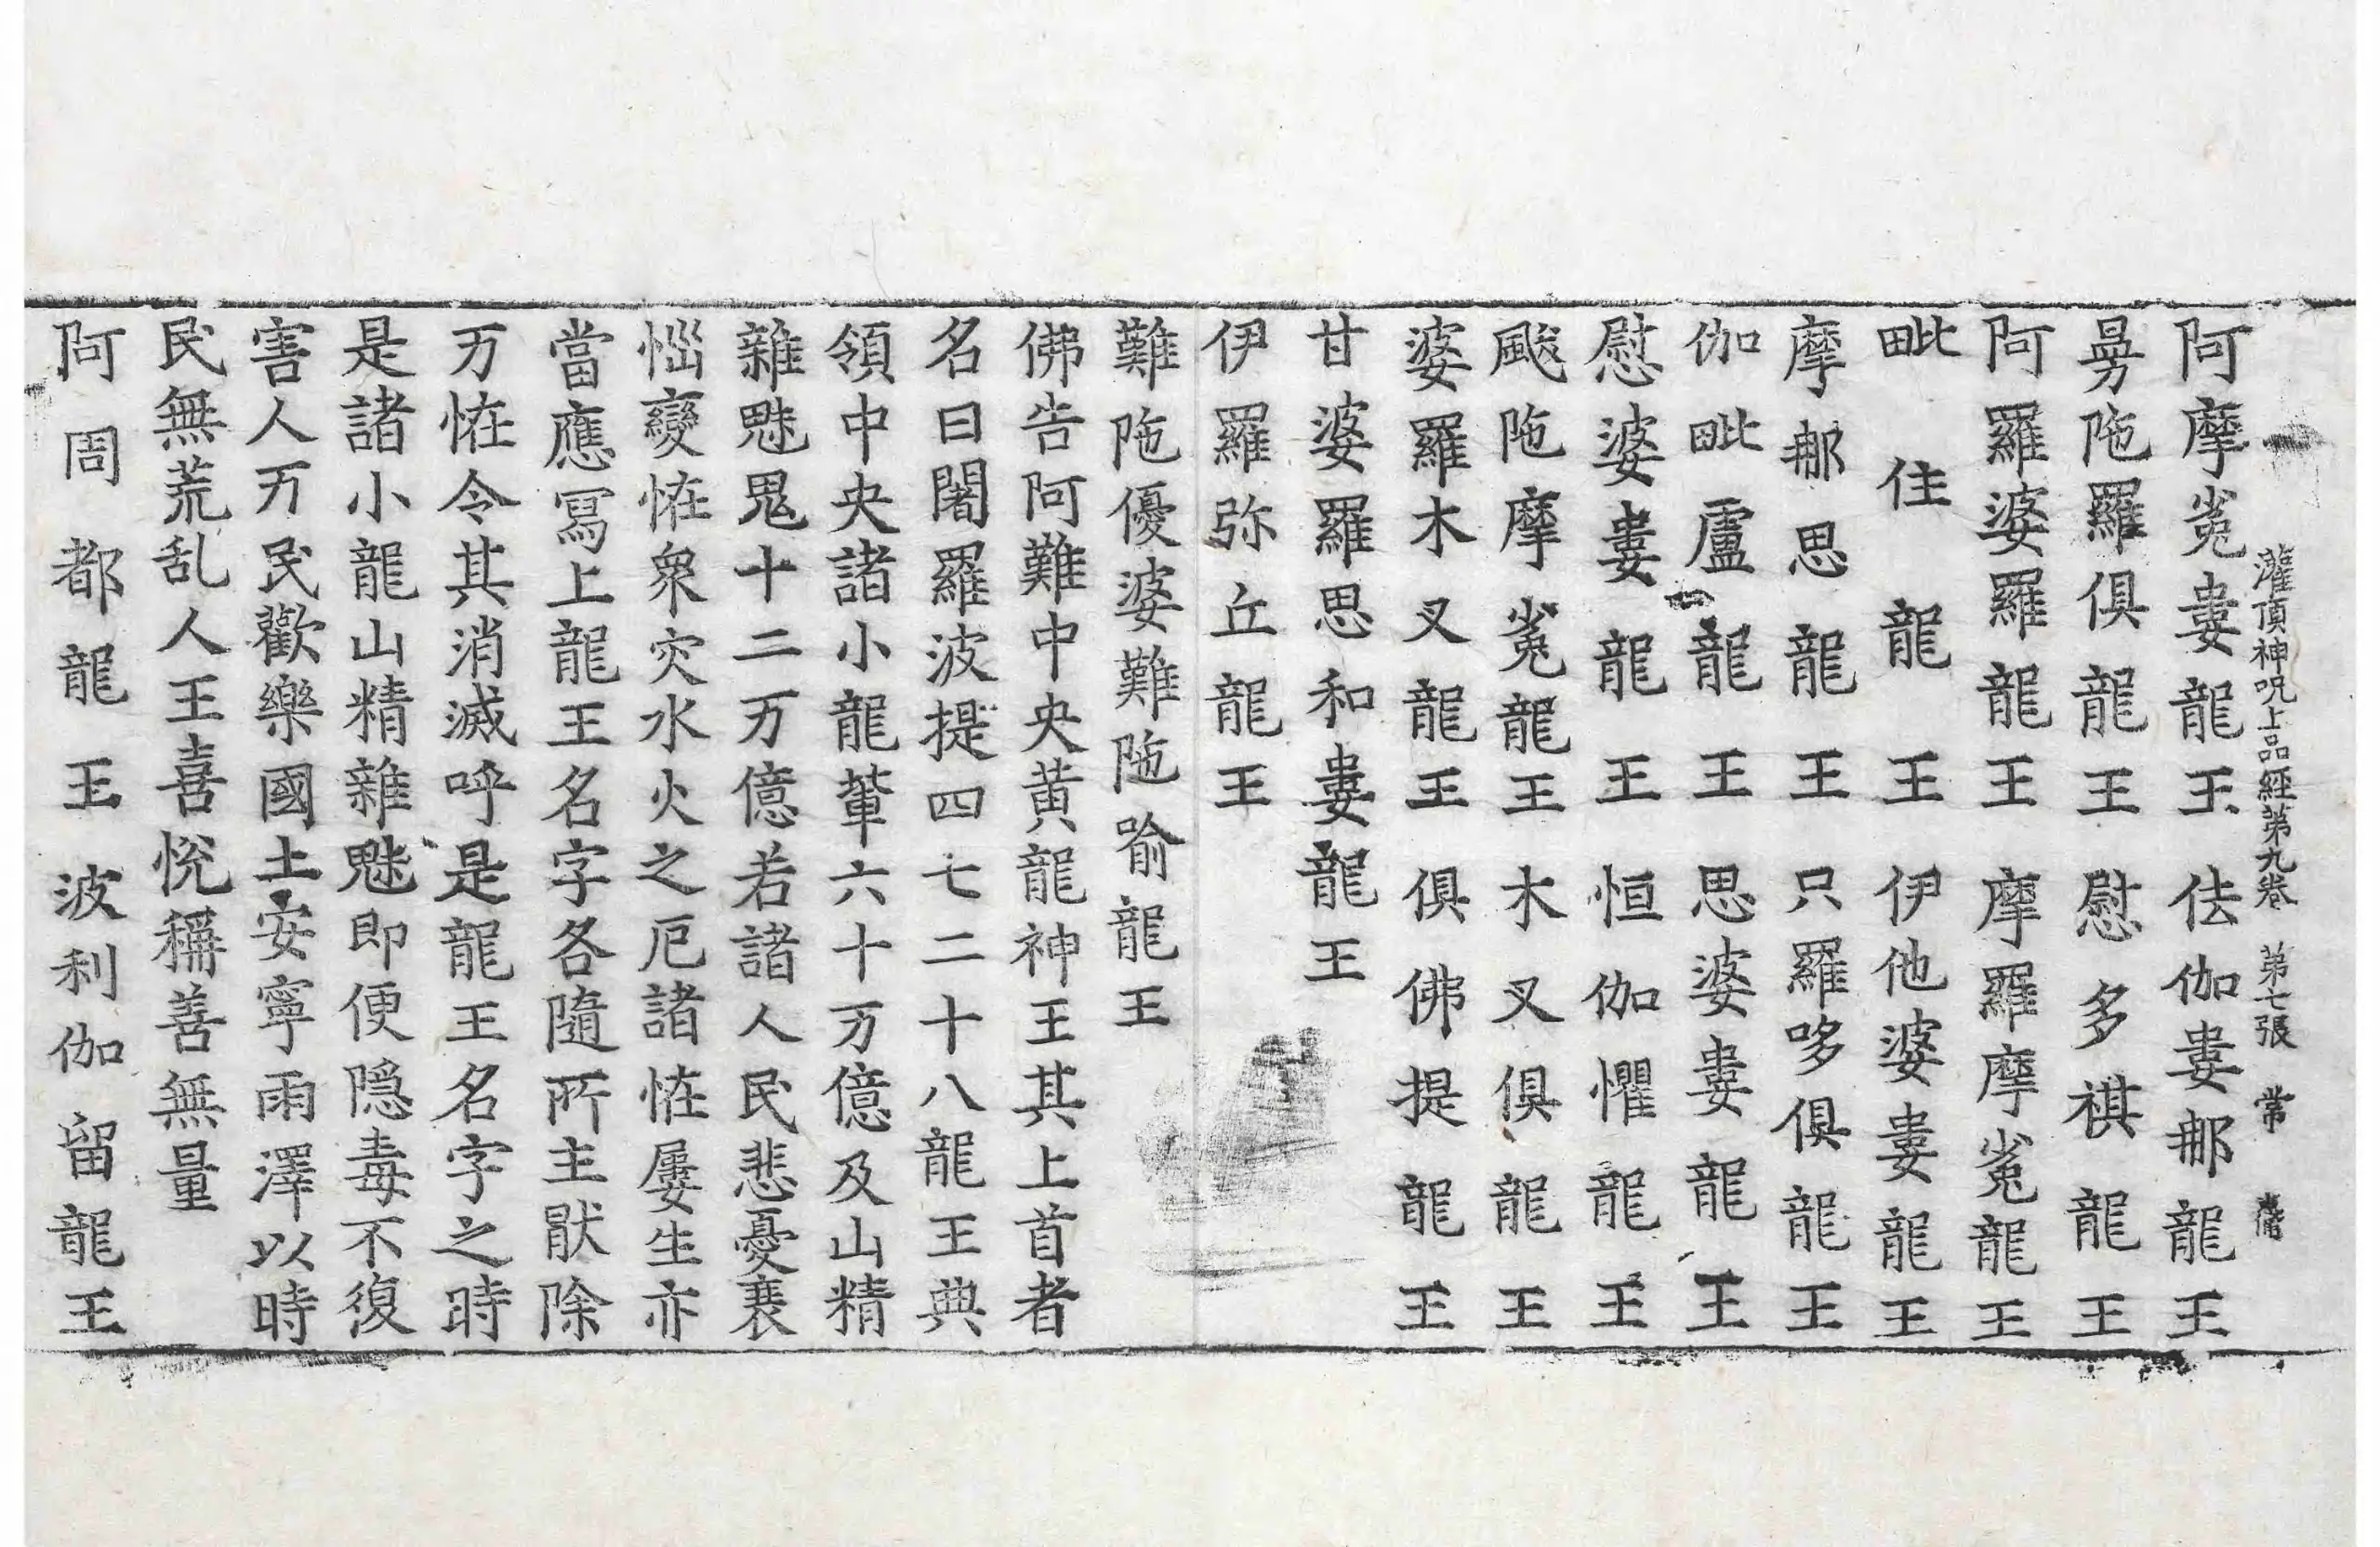 灌頂神呪上品経第九卷　第七張　常
阿摩㝹婁龍王　佉伽婁𨚗龍王
昜陁羅俱龍王　慰多祺龍王
阿羅婆羅龍王　摩羅摩㝹龍王
毗住龍王　伊他婆婁龍王
摩𨚗思龍王　只羅哆俱龍王
伽毗盧龍王　思婆婁龍王
慰婆婁龍王　恒伽懼龍王
颰陁摩㝹龍王　木叉俱龍王
婆羅木叉龍王　俱佛提龍王
甘婆羅思和婁龍王
伊羅弥丘龍王
難陁優婆難陁喻龍王
佛告阿難中央黃龍神王其上首者
名曰闍羅波提四七二十八龍王典
領中央諸小龍軰六十万億及山精
雜魅鬼十二万億若諸人民悲憂衰
惱變恠衆灾水火之厄諸恠屢生亦
當應寫上龍王名字各隨所主猒除
万恠令其消滅呼是龍王名字之時
是諸小龍山精雜魅即便隱毒不復
害人万民歡樂國土安寧雨澤以時
民無荒乱人王喜恱稱善無量
阿周都龍王波利伽留龍王